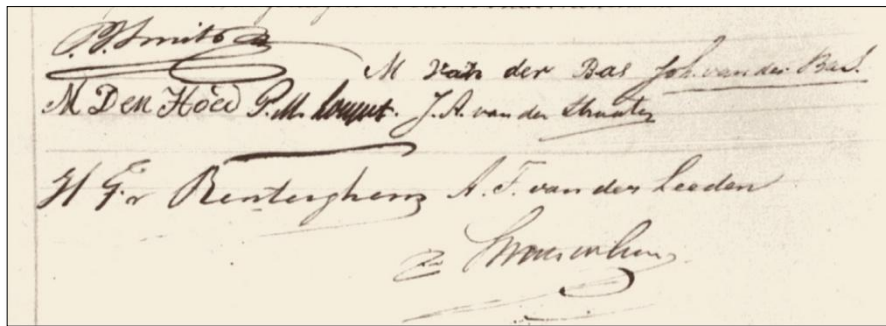 P. J. Smits
M van der Bas Joh. van der Bas.
M Den Hoed P. M. J. A. van der Straaten
H G. v Renterghem A. F. van der Leeden